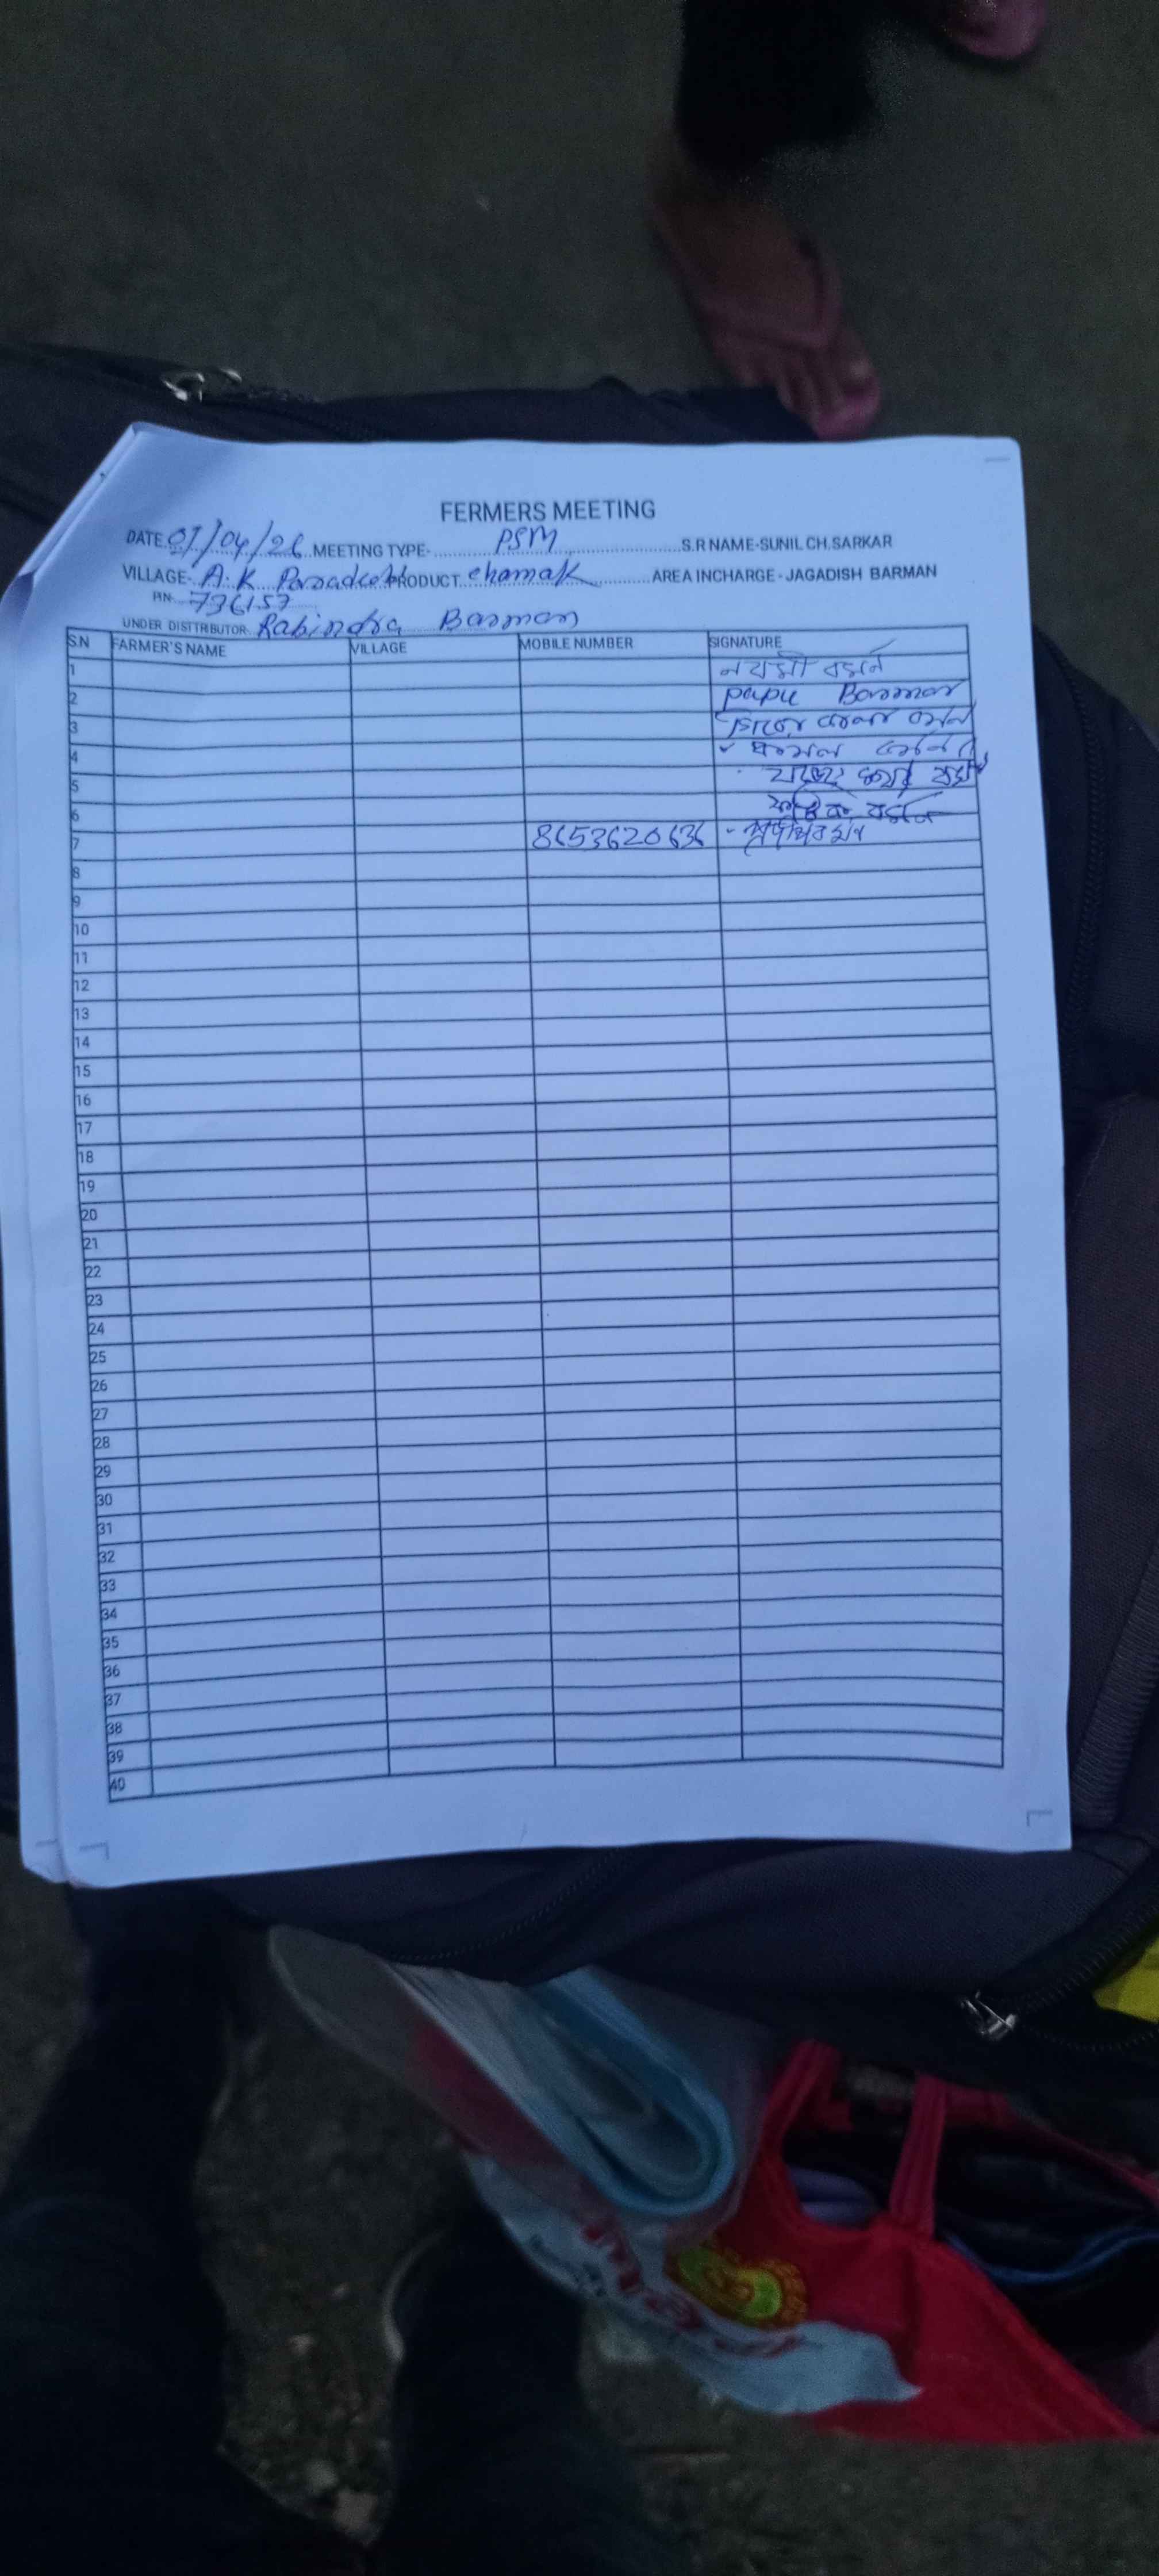 FERMERS MEETING
DATE 07/04/26 MEETING TYPE- PSM S.R NAME-SUNIL CH.SARKAR
VILLAGE- A.K PRODUCT chamak AREA INCHARGE - JAGADISH BARMAN
PIN- 736157
UNDER DISTTRIBUTOR- Rabindra Barman
S.N FARMER'S NAME VILLAGE MOBILE NUMBER SIGNATURE
1
2 papu Barman
3
4
5
6
7 8653620636
8
9
10
11
12
13
14
15
16
17
18
19
20
21
22
23
24
25
26
27
28
29
30
31
32
33
34
35
36
37
38
39
40